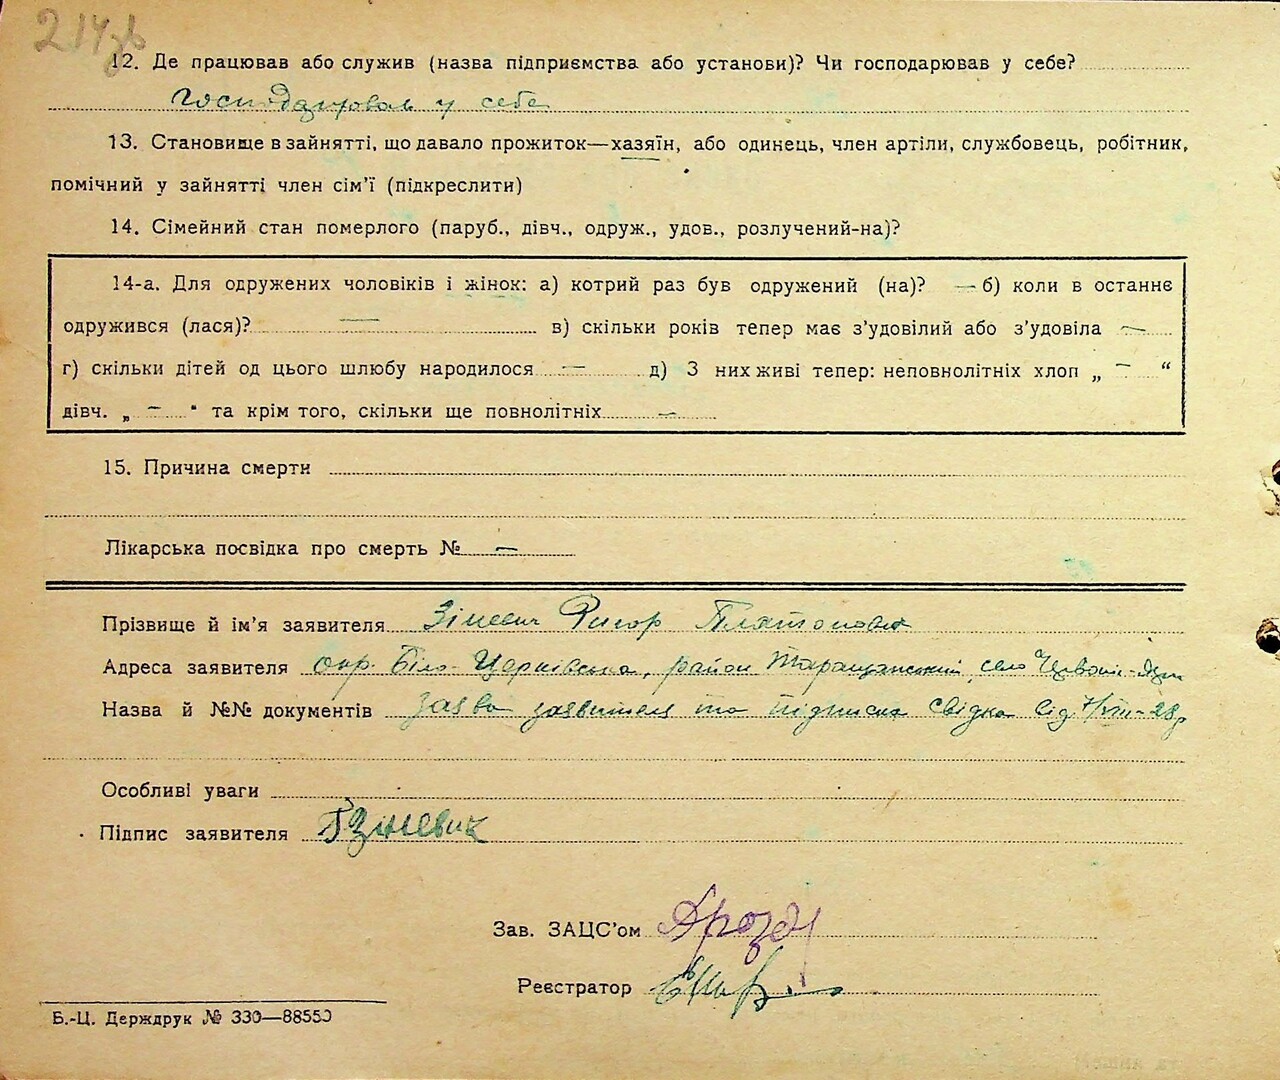 214зв
12. Де працював або служив (назва підприємства або установи)? Чи господарював у себе?
господарював у себе
13. Становище в зайнятті, що давало прожиток—хазяїн, або одинець, член артілі, службовець, робітник,
помічний у зайнятті член сім'ї (підкреслити)
14. Сімейний стан померлого (паруб., дівч., одруж., удов., розлучений-на)?
14-а. Для одружених чоловіків і жінок: а) котрий раз був одружений (на)? — б) коли в останнє
одружився (лася)? — в) скільки років тепер має з'удовілий або з'удовіла —
г) скільки дітей од цього шлюбу народилося — д) З них живі тепер: неповнолітніх хлоп „ — “
дівч. „ — “ та крім того, скільки ще повнолітніх —
15. Причина смерти
Лікарська посвідка про смерть № —
Прізвище й ім'я заявителя Зіневич Григор Платонович
Адреса заявителя окр. Біло-Церківська, район Таращанський, село
Назва й №№ документів заява заявителя та підписка свідка від 7/VIII-28р
Особливі уваги
Підпис заявителя Г Зіневич
Зав. ЗАЦС'ом Дрозд
Реєстратор
Б.-Ц. Держдрук № 330—88550